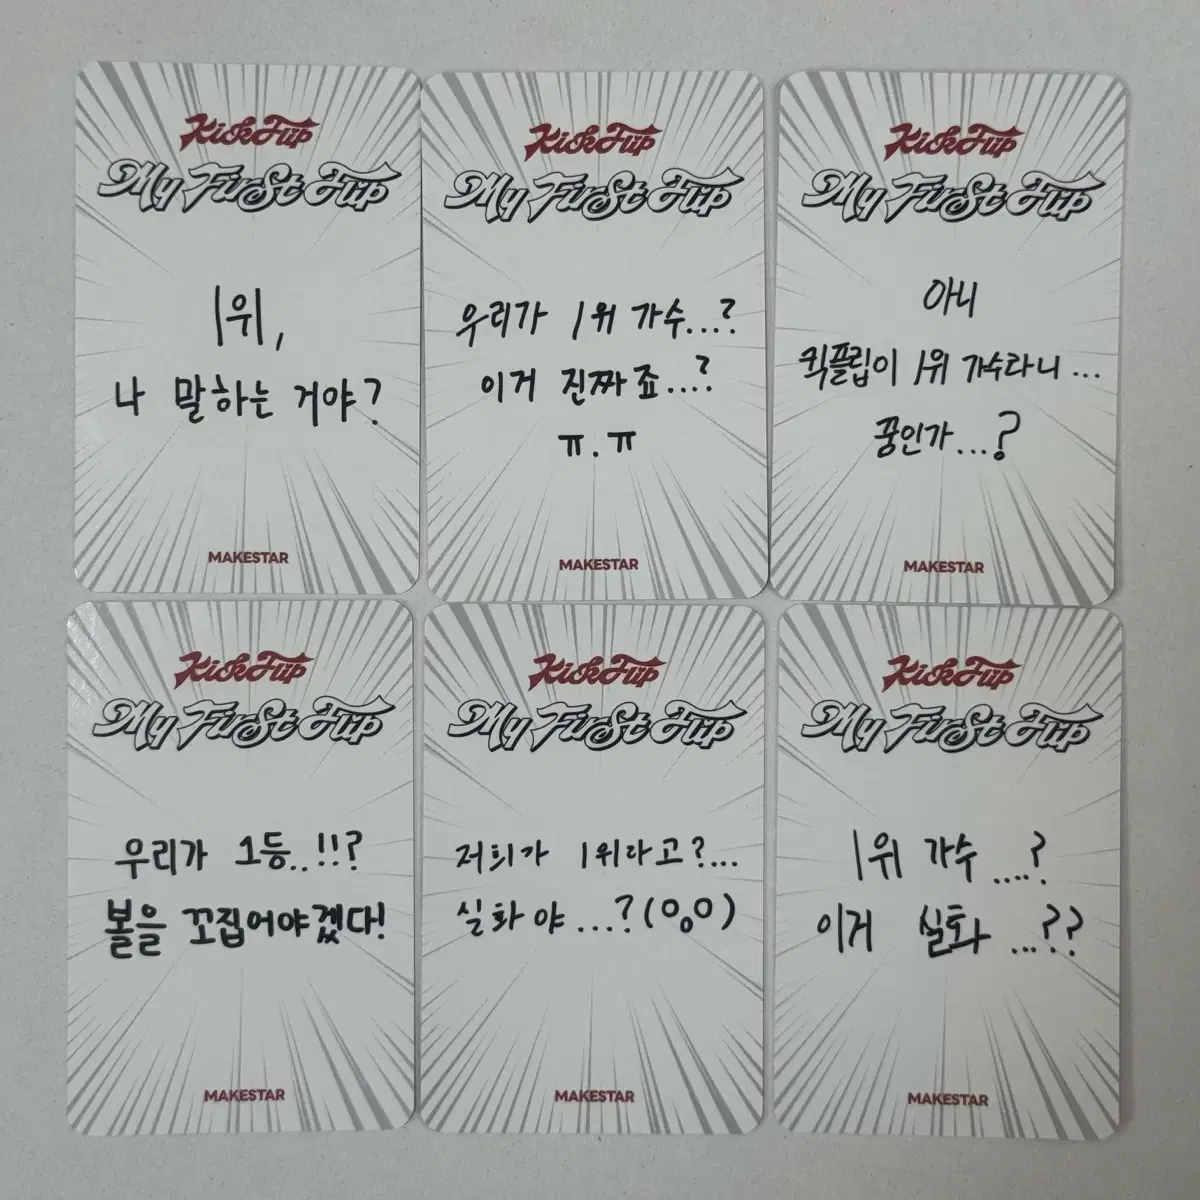 KickFlip
My First Flip
1위,
나 말하는 거야?
MAKESTAR
KickFlip
My First Flip
우리가 1위 가수...?
이거 진짜죠...?
ㅠ.ㅠ
MAKESTAR
KickFlip
My First Flip
아니
킥플립이 1위 가수라니...
꿈인가...?
MAKESTAR
KickFlip
My First Flip
우리가 1등..!!?
볼을 꼬집어야겠다!
MAKESTAR
KickFlip
My First Flip
저희가 1위라고?...
실화야...?(ㅇ0ㅇ)
MAKESTAR
KickFlip
My First Flip
1위 가수....?
이거 실화...??
MAKESTAR